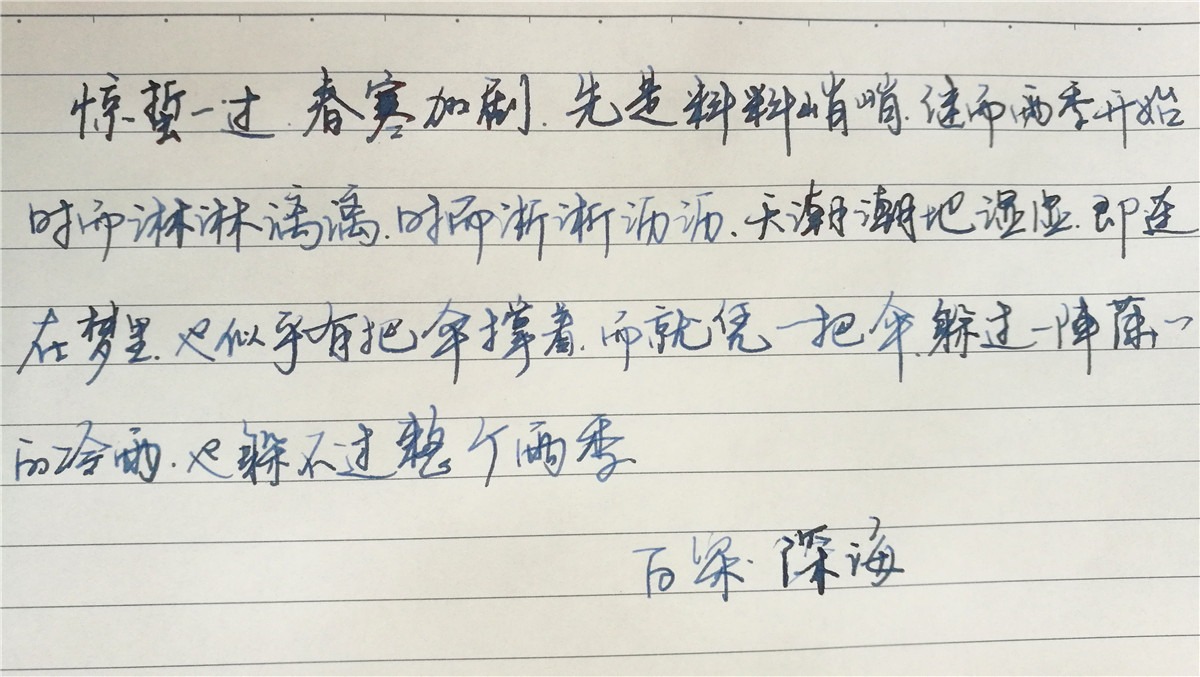 惊蛰一过.春寒加剧.先是料料峭峭.继而雨季开始
时而淋淋漓漓.时而淅淅沥沥.天潮潮地湿湿.即连
在梦里.也似乎有把伞撑着.而就凭一把伞.躲过一阵
的冷雨.也躲不过整个雨季
深海